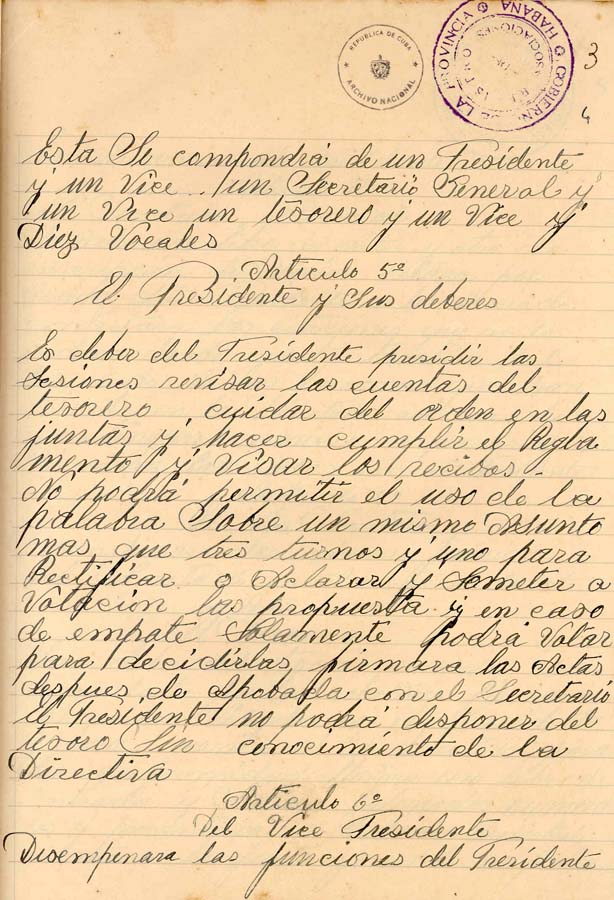 REPUBLICA DE CUBA
ARCHIVO NACIONAL
GOBIERNO DE LA PROVINCIA
HABANA
3
4
Esta Se compondrá de un Presidente
y un Vice un Secretario General y
un Vice un tesorero y un Vice y
Diez Vocales
Articulo 5º
El Presidente y Sus deberes
Es deber del Presidente presidir las
Sesiones revisar las cuentas del
tesorero cuidar del orden en las
juntas y hacer cumplir el Regla
mento y Visar los recibos -
No podrá permitir el uso de la
palabra Sobre un mismo Asunto
mas que tres turnos y uno para
Rectificar o Aclarar y Someter a
Votacion las propuesta y en caso
de empate Solamente podrá Votar
para decidirlas firmara las Actas
despues de Aprobada con el Secretario
el Presidente no podrá disponer del
tesoro Sin conocimiento de la
Directiva
Articulo 6º
Del Vice Presidente
Desempenara las funciones del Presidente